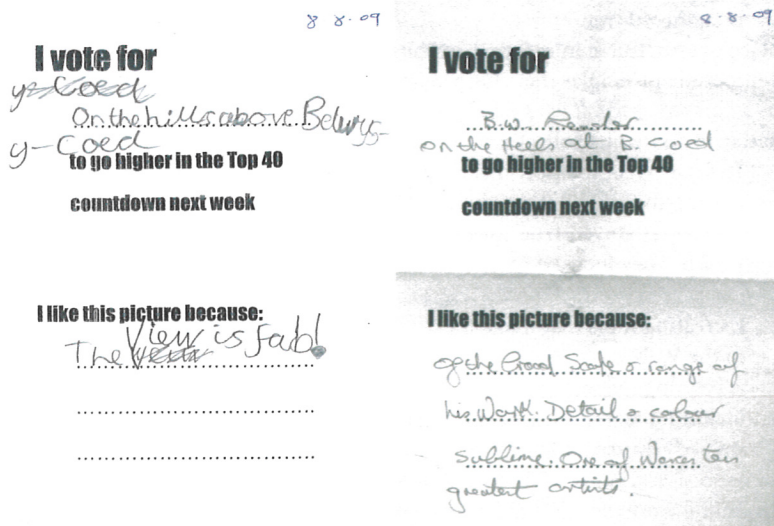 8 8.09
I vote for
y-Coed
On the hills above Betwys-
y-Coed
to go higher in the Top 40
countdown next week
I like this picture because:
The View is fab!
8.8.09
I vote for
B.W. Leader
on the Heels at B. Coed
to go higher in the Top 40
countdown next week
I like this picture because:
of the Broad Scope & range of
his Work. Detail & colour
sublime. One of Worcesters
greatest artists.